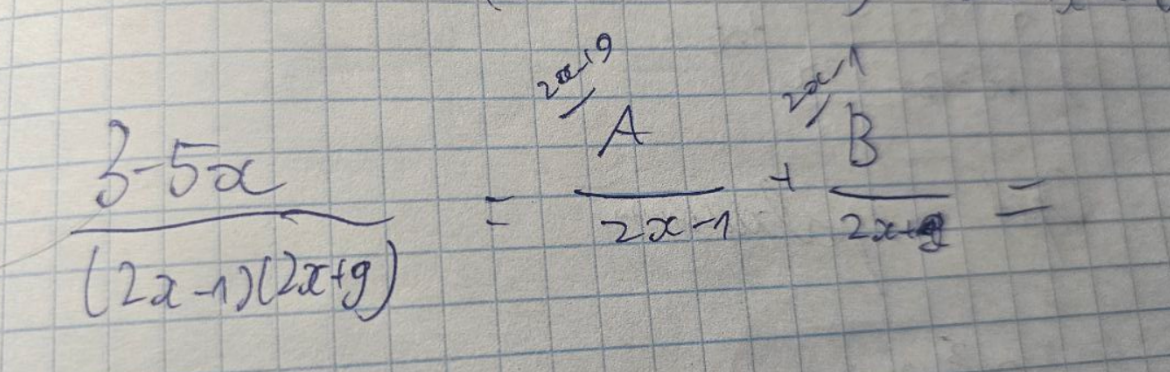 (3-5x)/((2x-1)(2x+9)) = (2x+9/ A)/(2x-1) + (2x-1/ B)/(2x+9) =